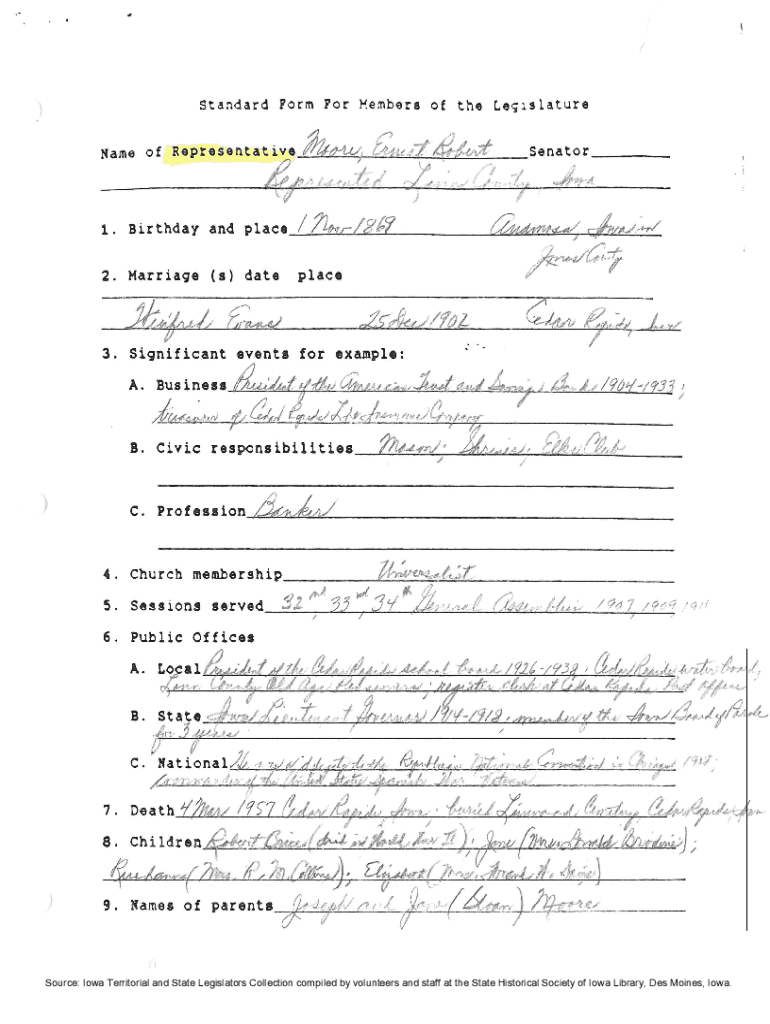 Standard Form For Members of the Legislature
Name of Representative Moore, Ernest Robert Senator
Represented Linn County Iowa
1. Birthday and place 1 Nov 1869 Anamosa, Iowa in
Jones County
2. Marriage (s) date place
Winifred Evans 25 Dec 1902 Cedar Rapids, Iowa
3. Significant events for example:
A. Business President of the American Trust and Savings Bank 1904-1933;
treasurer of Cedar Rapids Life Insurance Company
B. Civic responsibilities Mason; Shriner; Elks Club
C. Profession Banker
4. Church membership Universalist
5. Sessions served 32nd, 33rd, 34th General Assemblies 1907, 1909, 1911
6. Public Offices
A. Local President of the Cedar Rapids school board 1926-1938; Cedar Rapids water board;
Linn County Old Age; register clerk at Cedar Rapids Post Office
B. State Iowa Lieutenant Governor 1914-1918; member of the Iowa Board of Parole
for 3 years
C. National delegate to the Republican National Convention in Chicago
Commander of the United States Spanish War Veterans
7. Death 4 Mar 1957 Cedar Rapids, Iowa; buried Linwood Cemetery, Cedar Rapids, Iowa
8. Children Robert Bruce (died in World War II); Jane (Mrs. Donald);
(Mrs. R. M. Collins); Elizabeth (Mrs.)
9. Names of parents Joseph and Jane (Sloan) Moore
Source: Iowa Territorial and State Legislators Collection compiled by volunteers and staff at the State Historical Society of Iowa Library, Des Moines, Iowa.